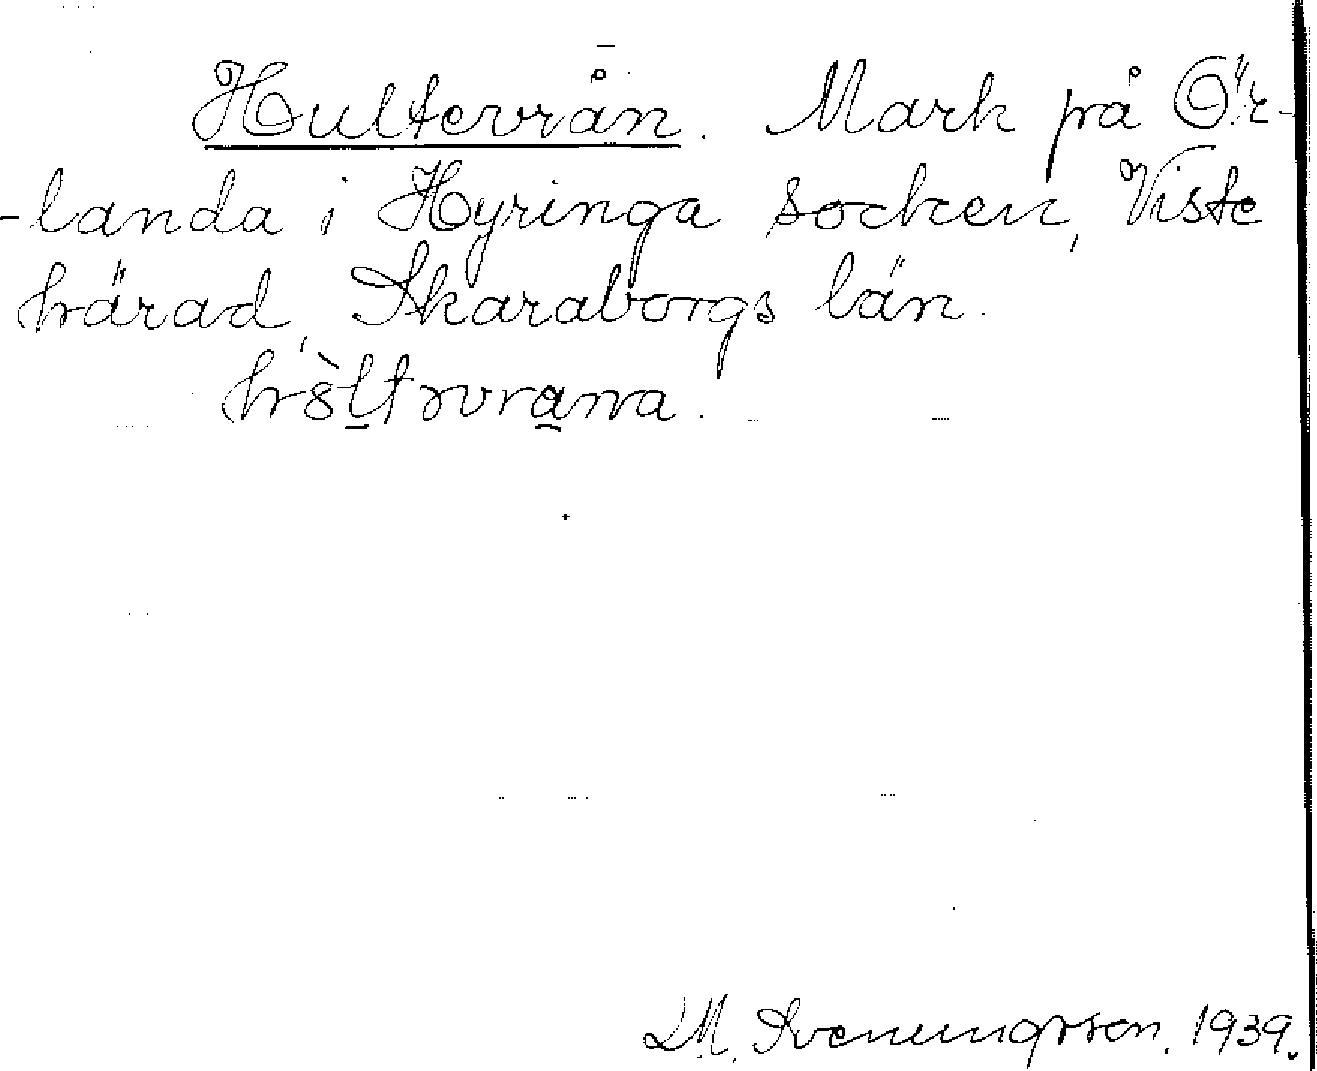 Hultevrån. Mark på Ör-
-landa i Hyringa socken, Viste
härad, Skaraborgs län.
M. Svenungsson. 1939.